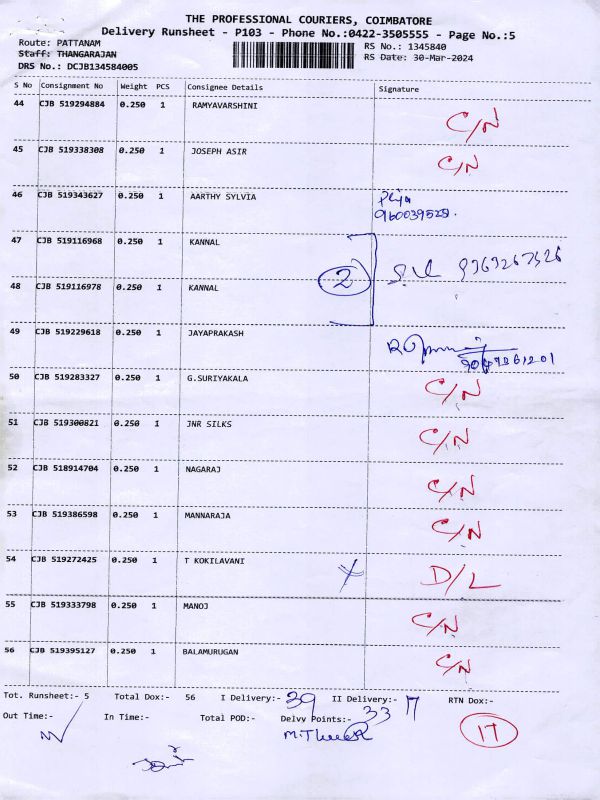 THE PROFESSIONAL COURIERS, COIMBATORE
Delivery Runsheet - P103 - Phone No.:0422-3505555 - Page No.:5
Route: PATTANAM RS No.: 1345840
Staff: THANGARAJAN RS Date: 30-Mar-2024
DRS No.: DCJB134584005
S No Consignment No Weight PCS Consignee Details Signature
44 CJB 519294884 0.250 1 RAMYAVARSHINI C/N
45 CJB 519338308 0.250 1 JOSEPH ASIR C/N
46 CJB 519343627 0.250 1 AARTHY SYLVIA
47 CJB 519116968 0.250 1 KANNAL
2
48 CJB 519116978 0.250 1 KANNAL
49 CJB 519229618 0.250 1 JAYAPRAKASH
50 CJB 519283327 0.250 1 G.SURIYAKALA C/N
51 CJB 519300821 0.250 1 JNR SILKS C/N
52 CJB 518914704 0.250 1 NAGARAJ C/N
53 CJB 519386598 0.250 1 MANNARAJA C/N
54 CJB 519272425 0.250 1 T KOKILAVANI D/L
55 CJB 519333798 0.250 1 MANOJ C/N
56 CJB 519395127 0.250 1 BALAMURUGAN C/N
Tot. Runsheet:- 5 Total Dox:- 56 I Delivery:- 39 II Delivery:- 17 RTN Dox:-
Out Time:- In Time:- Total POD:- Delvy Points:- 33 17